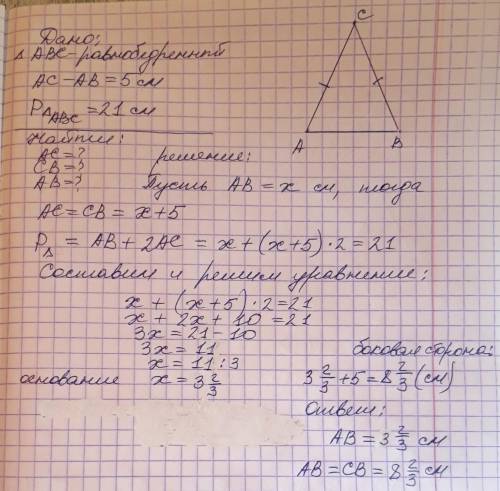 Дано:
Δ ABC - равнобедренный
AC - AB = 5 см
P ΔABC = 21 см
C
A
B
Найти:
AC = ?
CB = ?
AB = ?
решение:
Пусть AB = x см, тогда
AC = CB = x + 5
PΔ = AB + 2AC = x + (x + 5) · 2 = 21
Составим и решим уравнение:
x + (x + 5) · 2 = 21
x + 2x + 10 = 21
3x = 21 - 10
3x = 11
x = 11 : 3
основание x = 3 2/3
боковая сторона:
3 2/3 + 5 = 8 2/3 (см)
Ответ:
AB = 3 2/3 см
AB = CB = 8 2/3 см